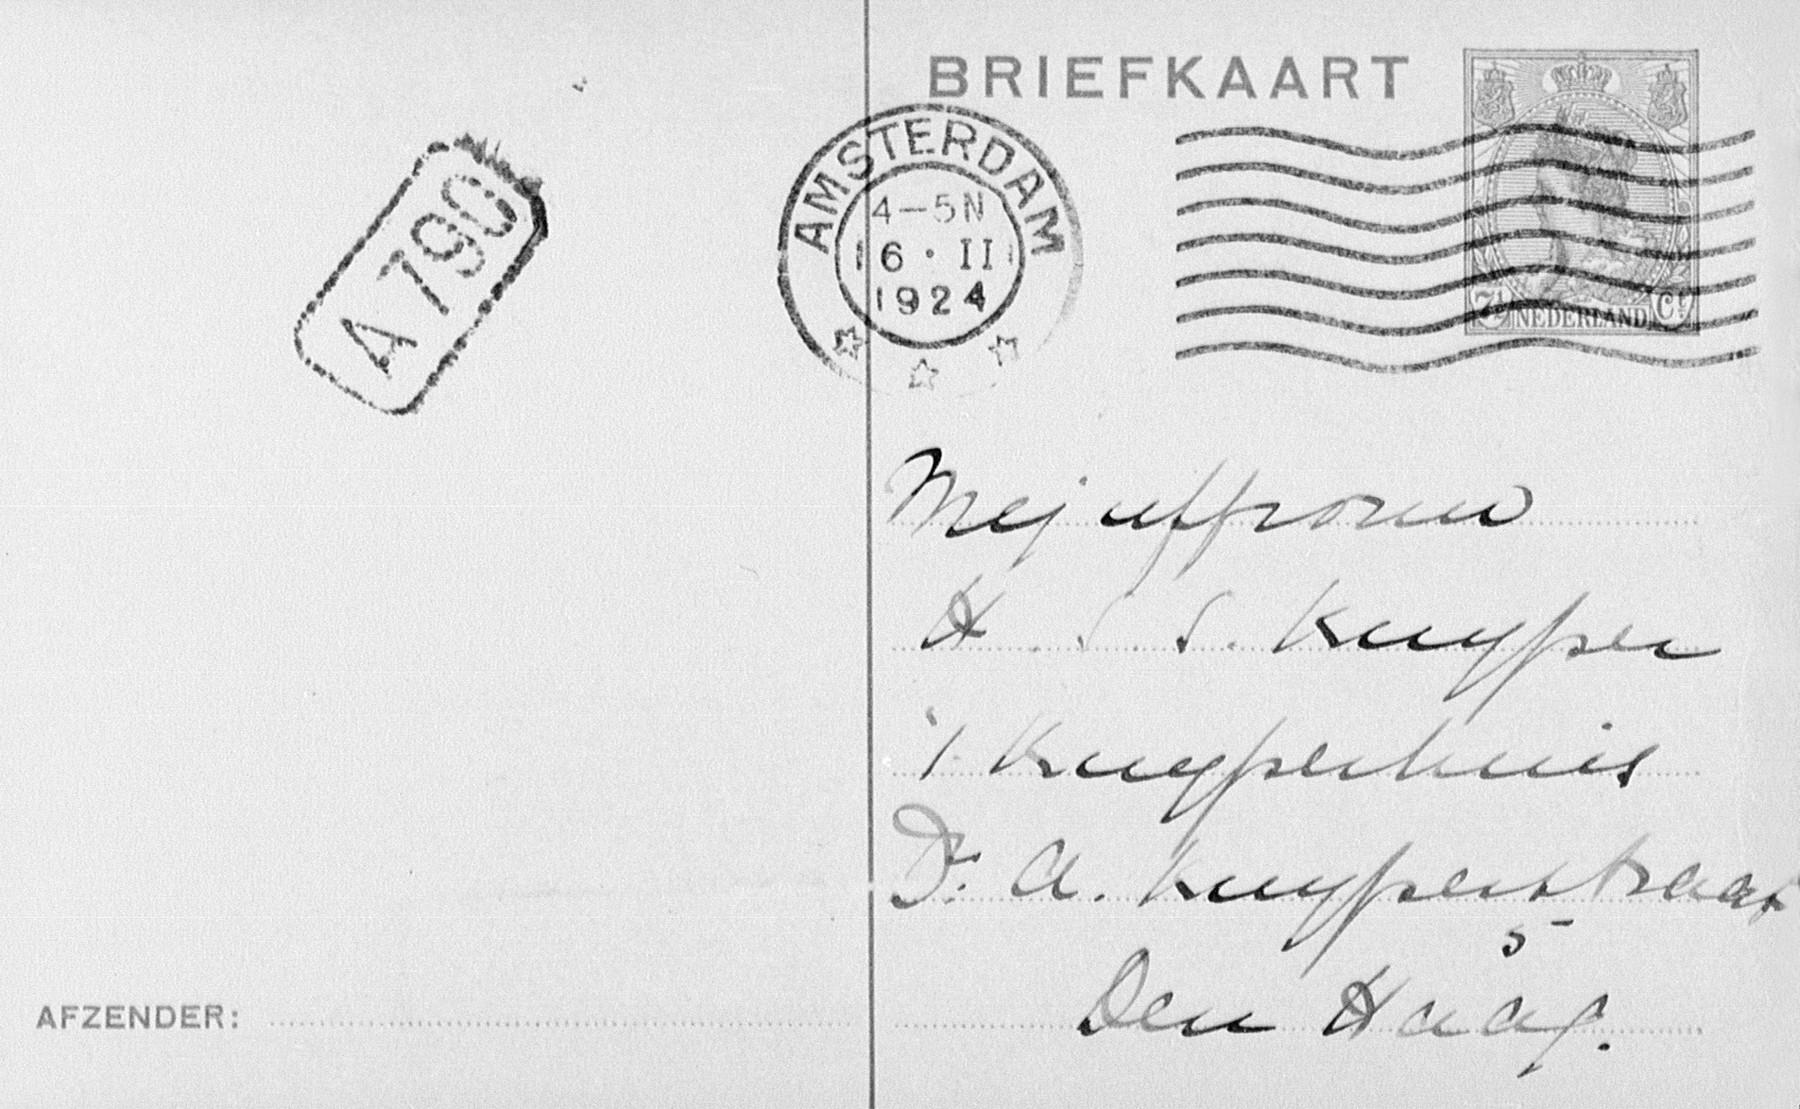 BRIEFKAART
A 790
AMSTERDAM
4–5N
16 · II
1924
7½ NEDERLAND Ct
Mejuffrouw
H. S. S. Kuyper
't Kuyperhuis
Dr. A. Kuyperstraat
5
Den Haag.
AFZENDER: